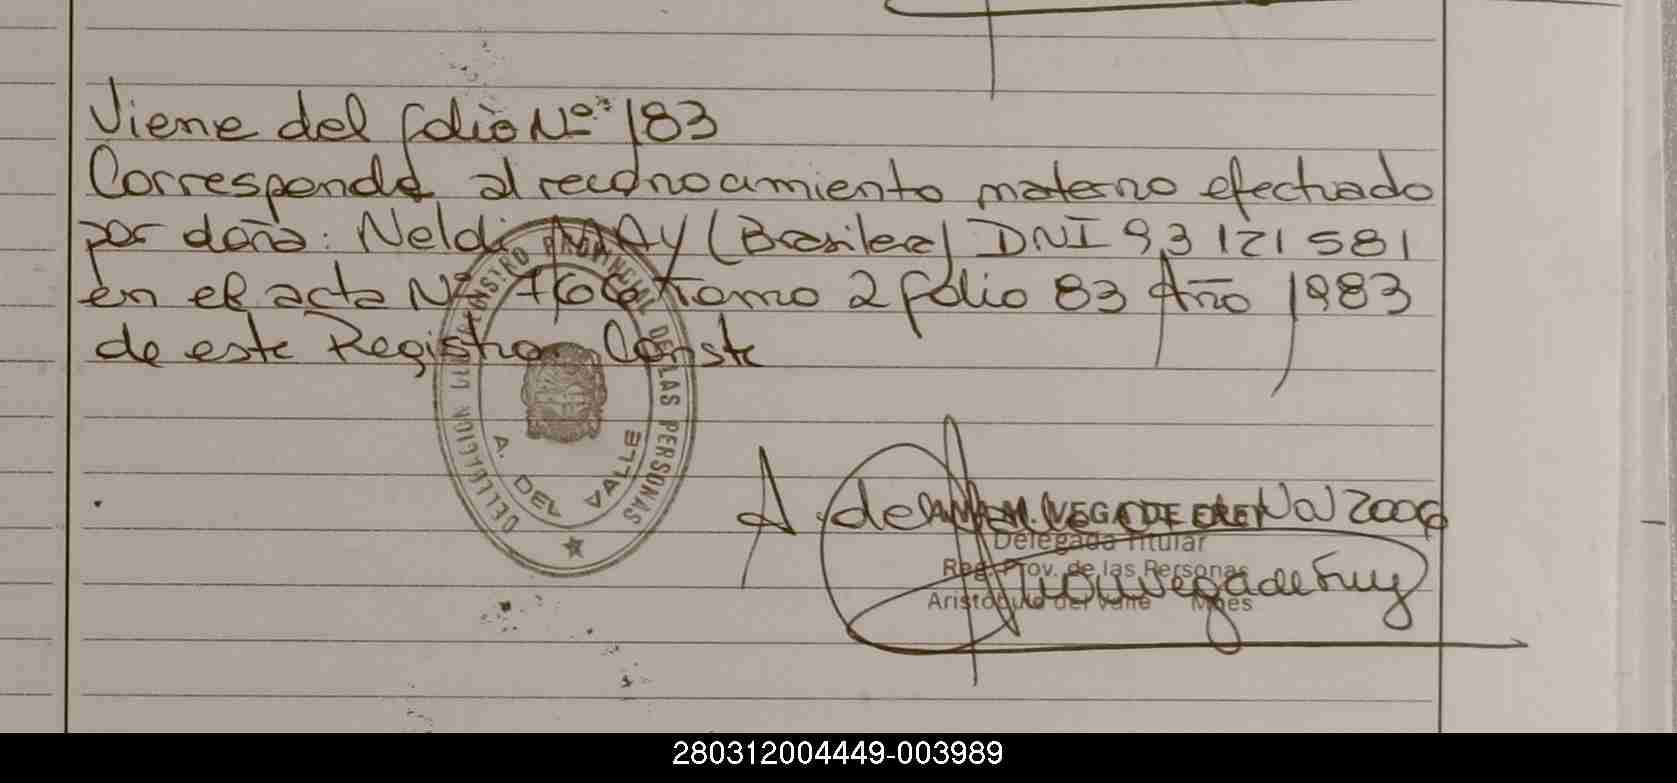 Viene del folio Nº 183
Corresponde al reconocimiento materno efectuado
por doña: Neldi MAY (Brasilera) DNI 93 121 581
en el acta Nº 766 tomo 2 folio 83 Año 1983
de este Registro. Conste
DELEGACION REGISTRO PROVINCIAL DE LAS PERSONAS
A. DEL VALLE
A. del 2006
VEGA DE
Delegada Titular
Reg. Prov. de las Personas
Aristóbulo del Valle Mnes
280312004449-003989